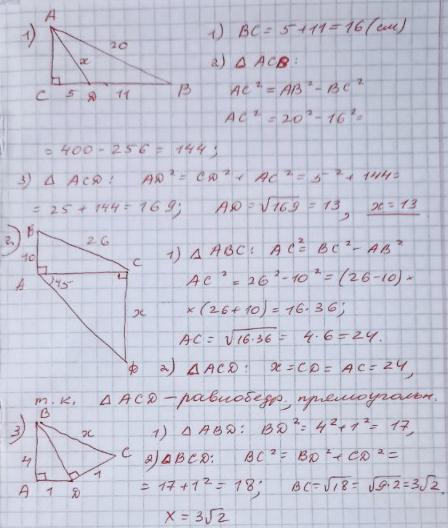 1)
A
20
x
C 5 D 11 B
1) BC = 5+11 = 16 (см)
2) △ ACB:
AC² = AB² - BC²
AC² = 20² - 16² =
= 400 - 256 = 144;
3) △ ACD: AD² = CD² + AC² = 5² + 144 =
= 25 + 144 = 169; AD = √169 = 13, x = 13
2)
B
26
10
A
45
C
x
D
1) △ ABC: AC² = BC² - AB²
AC² = 26² - 10² = (26-10) ×
× (26+10) = 16·36;
AC = √16·36 = 4·6 = 24.
2) △ ACD: x = CD = AC = 24,
т.к. △ ACD - равнобедр, прямоугольн.
3)
B
x
4
C
1
A 1 D
1) △ ABD: BD² = 4² + 1² = 17,
2) △ BCD: BC² = BD² + CD² =
= 17 + 1² = 18; BC = √18 = √9·2 = 3√2
X = 3√2